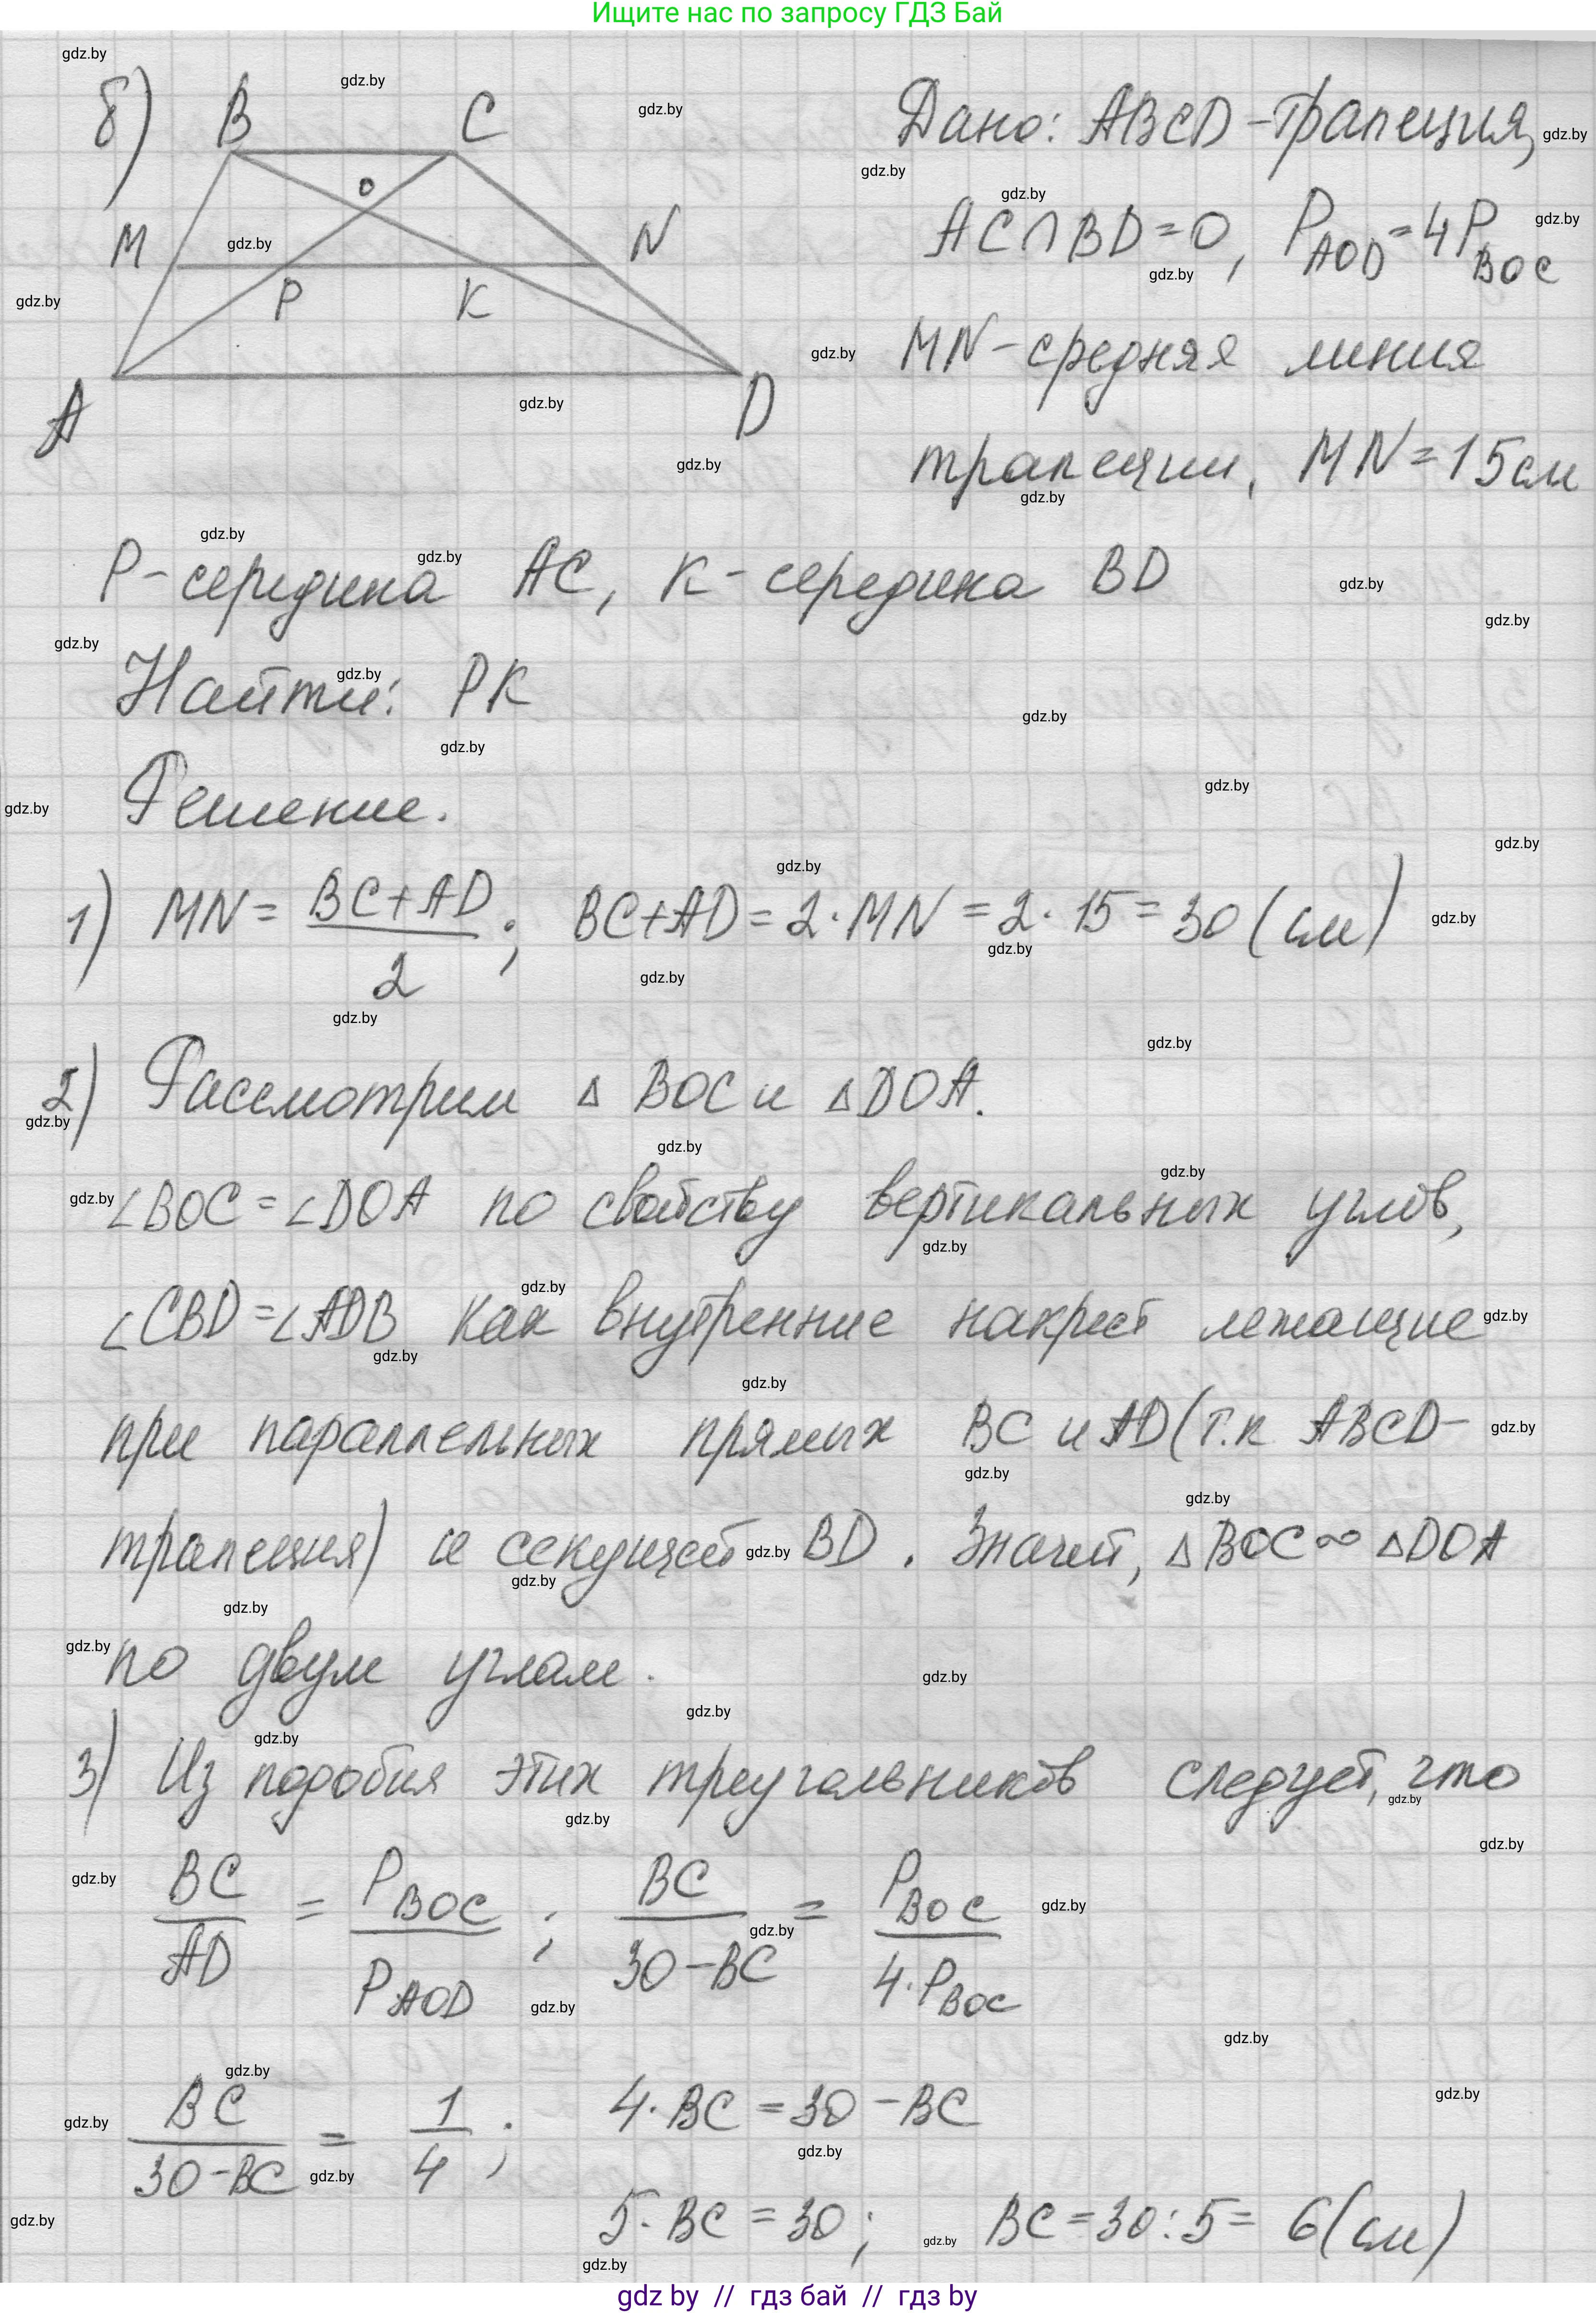 Ищите нас по запросу ГДЗ Бай
б) B C
O
M N
P K
A D
Дано: ABCD - трапеция,
AC∩BD=O, P_AOD = 4P_BOC
MN - средняя линия
трапеции, MN = 15 см
P - середина AC, K - середина BD
Найти: PK
Решение.
1) MN = (BC+AD)/2; BC+AD = 2·MN = 2·15 = 30 (см)
2) Рассмотрим Δ BOC и ΔDOA.
∠BOC = ∠DOA по свойству вертикальных углов,
∠CBD = ∠ADB как внутренние накрест лежащие
при параллельных прямых BC и AD (т.к ABCD -
трапеция) и секущей BD. Значит, ΔBOC ∞ ΔDOA
по двум углам.
3) Из подобия этих треугольников следует, что
BC/AD = P_BOC/P_AOD; BC/(30-BC) = P_BOC/(4·P_BOC)
BC/(30-BC) = 1/4; 4·BC = 30 - BC
5·BC = 30; BC = 30:5 = 6 (см)
gdz by // гдз бай // гдз by